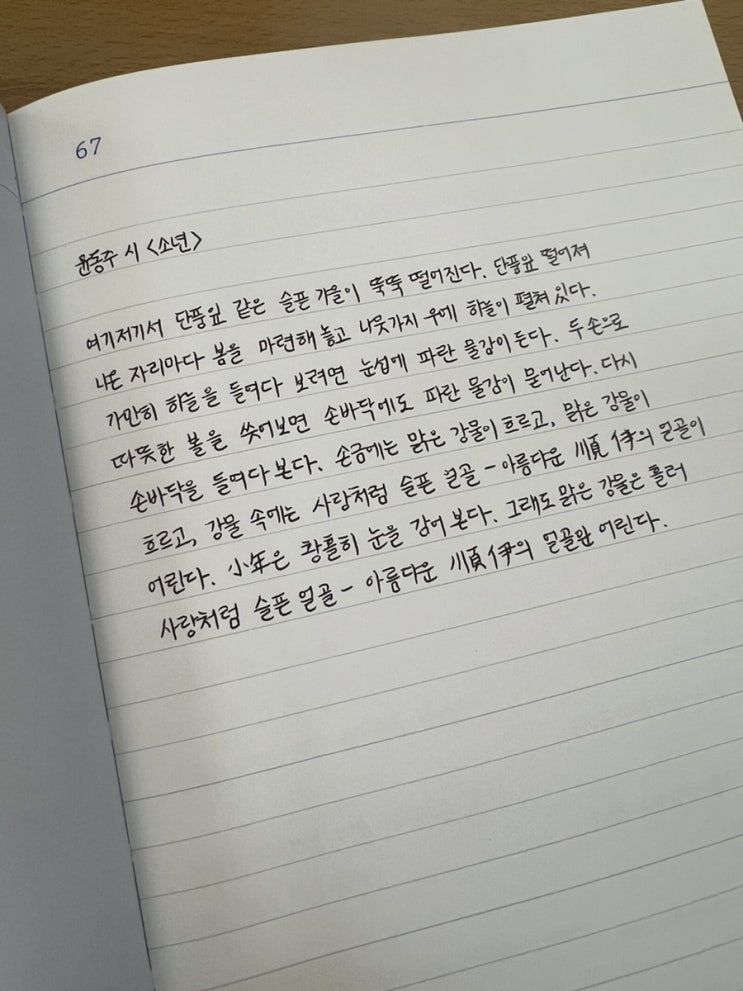 67
윤동주 시 <소년>
여기저기서 단풍잎 같은 슬픈 가을이 뚝뚝 떨어진다. 단풍잎 떨어져
나온 자리마다 봄을 마련해 놓고 나뭇가지 우에 하늘이 펼쳐 있다.
가만히 하늘을 들여다 보려면 눈섭에 파란 물감이 든다. 두 손으로
따뜻한 볼을 씃어보면 손바닥에도 파란 물감이 묻어난다. 다시
손바닥을 들여다 본다. 손금에는 맑은 강물이 흐르고, 맑은 강물이
흐르고, 강물 속에는 사랑처럼 슬픈 얼골 - 아름다운 順伊의 얼골이
어린다. 小年은 황홀히 눈을 감어 본다. 그래도 맑은 강물은 흘러
사랑처럼 슬픈 얼골 - 아름다운 順伊의 얼골만 어린다.